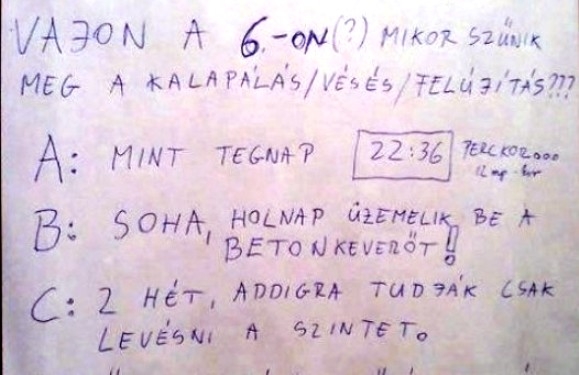 VAJON A 6.-ON(?) MIKOR SZŰNIK
MEG A KALAPÁLÁS/VÉSÉS/FELÚJÍTÁS???
A: MINT TEGNAP 22:36 PERCKOR...
B: SOHA, HOLNAP ÜZEMELIK BE A
BETONKEVERŐT!
C: 2 HÉT, ADDIGRA TUDJÁK CSAK
LEVÉSNI A SZINTET.